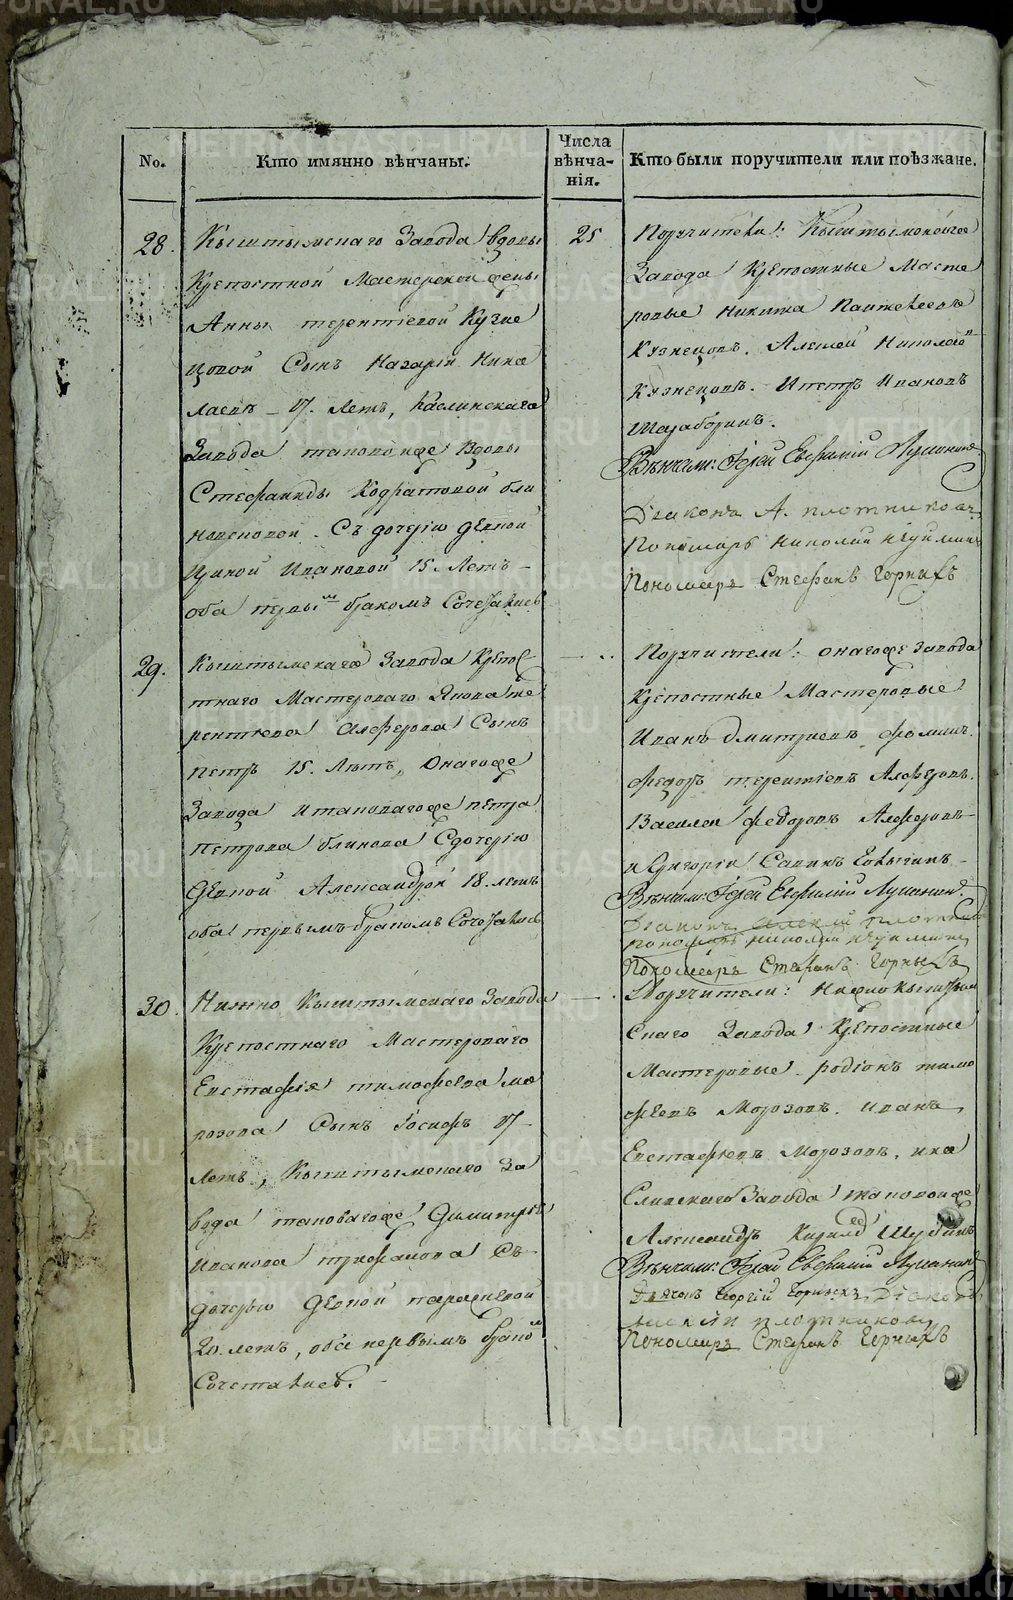 No.
Кто имянно вѣнчаны.
Числа
вѣнча-
нія.
Кто были поручители или поѣзжане.
28.
Кыштымскаго Завода вдовы
Крепостной Мастерской жены
Анны терентіевой Кузне
цовой Сынъ Назарій Нико
лаевъ 17. Летъ, Каслинскаго
Завода таковойже вдовы
Стефаниды Кодратовой бли
новсковой. Съ дочерію девкой
Ириной Ивановой 15. Летъ
оба первымъ бракомъ Сочетались
25
Поручители: Кыштымскаго
Завода Крепостные Масте
ровые Никита Пантелеевъ
Кузнецовъ. Алексей Николаевъ
Кузнецовъ. И петръ Ивановъ
Шалабогинъ.
Вѣнчали: Іерей Евфимій Лу
Діаконъ А. плотниковъ
Пономарь Николай
Пономарь Стефанъ Горныхъ
29.
Кыштымскаго Завода Крепос
тнаго Мастероваго Якова те
рентьева Алферова Сынъ
петръ 15. Лѣтъ, Онагоже
Завода и таковагоже петра
петрова блинова Сдочерію
девкой Александрой 18. летъ
оба первымъ бракомъ Сочетались
Поручители: онагоже завода
Крепостные Мастеровые
Иванъ дмитріевъ фоминъ.
федоръ терентіевъ Алферовъ.
Василеи федоровъ Алферовъ
и Григоріи Савинъ
Вѣнчали: Іерей Евфимій Лу
Діаконъ Алексій плотниковъ
пономарь николай
Пономарь Стефанъ Горныхъ
30.
Нижно Кыштымскаго Завода
Крепостнаго Мастероваго
Евстафія тимофеева мо
розова Сынъ Іосифъ 17
Летъ, Кыштымскаго За
вода таковагоже Димитрія
Иванова труфанова Съ
дочерью девкой параскевой
20. летъ, оба первымъ браком
Сочетались.
Поручители: Нижнокыштым
скаго Завода Крепостные
Мастеровые родіонъ тимо
феевъ Морозовъ. иванъ
Евстафьевъ Морозовъ, ика
слинскаго Завода таковойже
Александръ Кирилов Шубинъ
Вѣнчали: Іерей Евфимій Лу
Дьячокъ Георгій Горныхъ Діаконъ
Алексій плотниковъ
Пономарь Стефанъ Горныхъ
METRIKI.GASO-URAL.RU